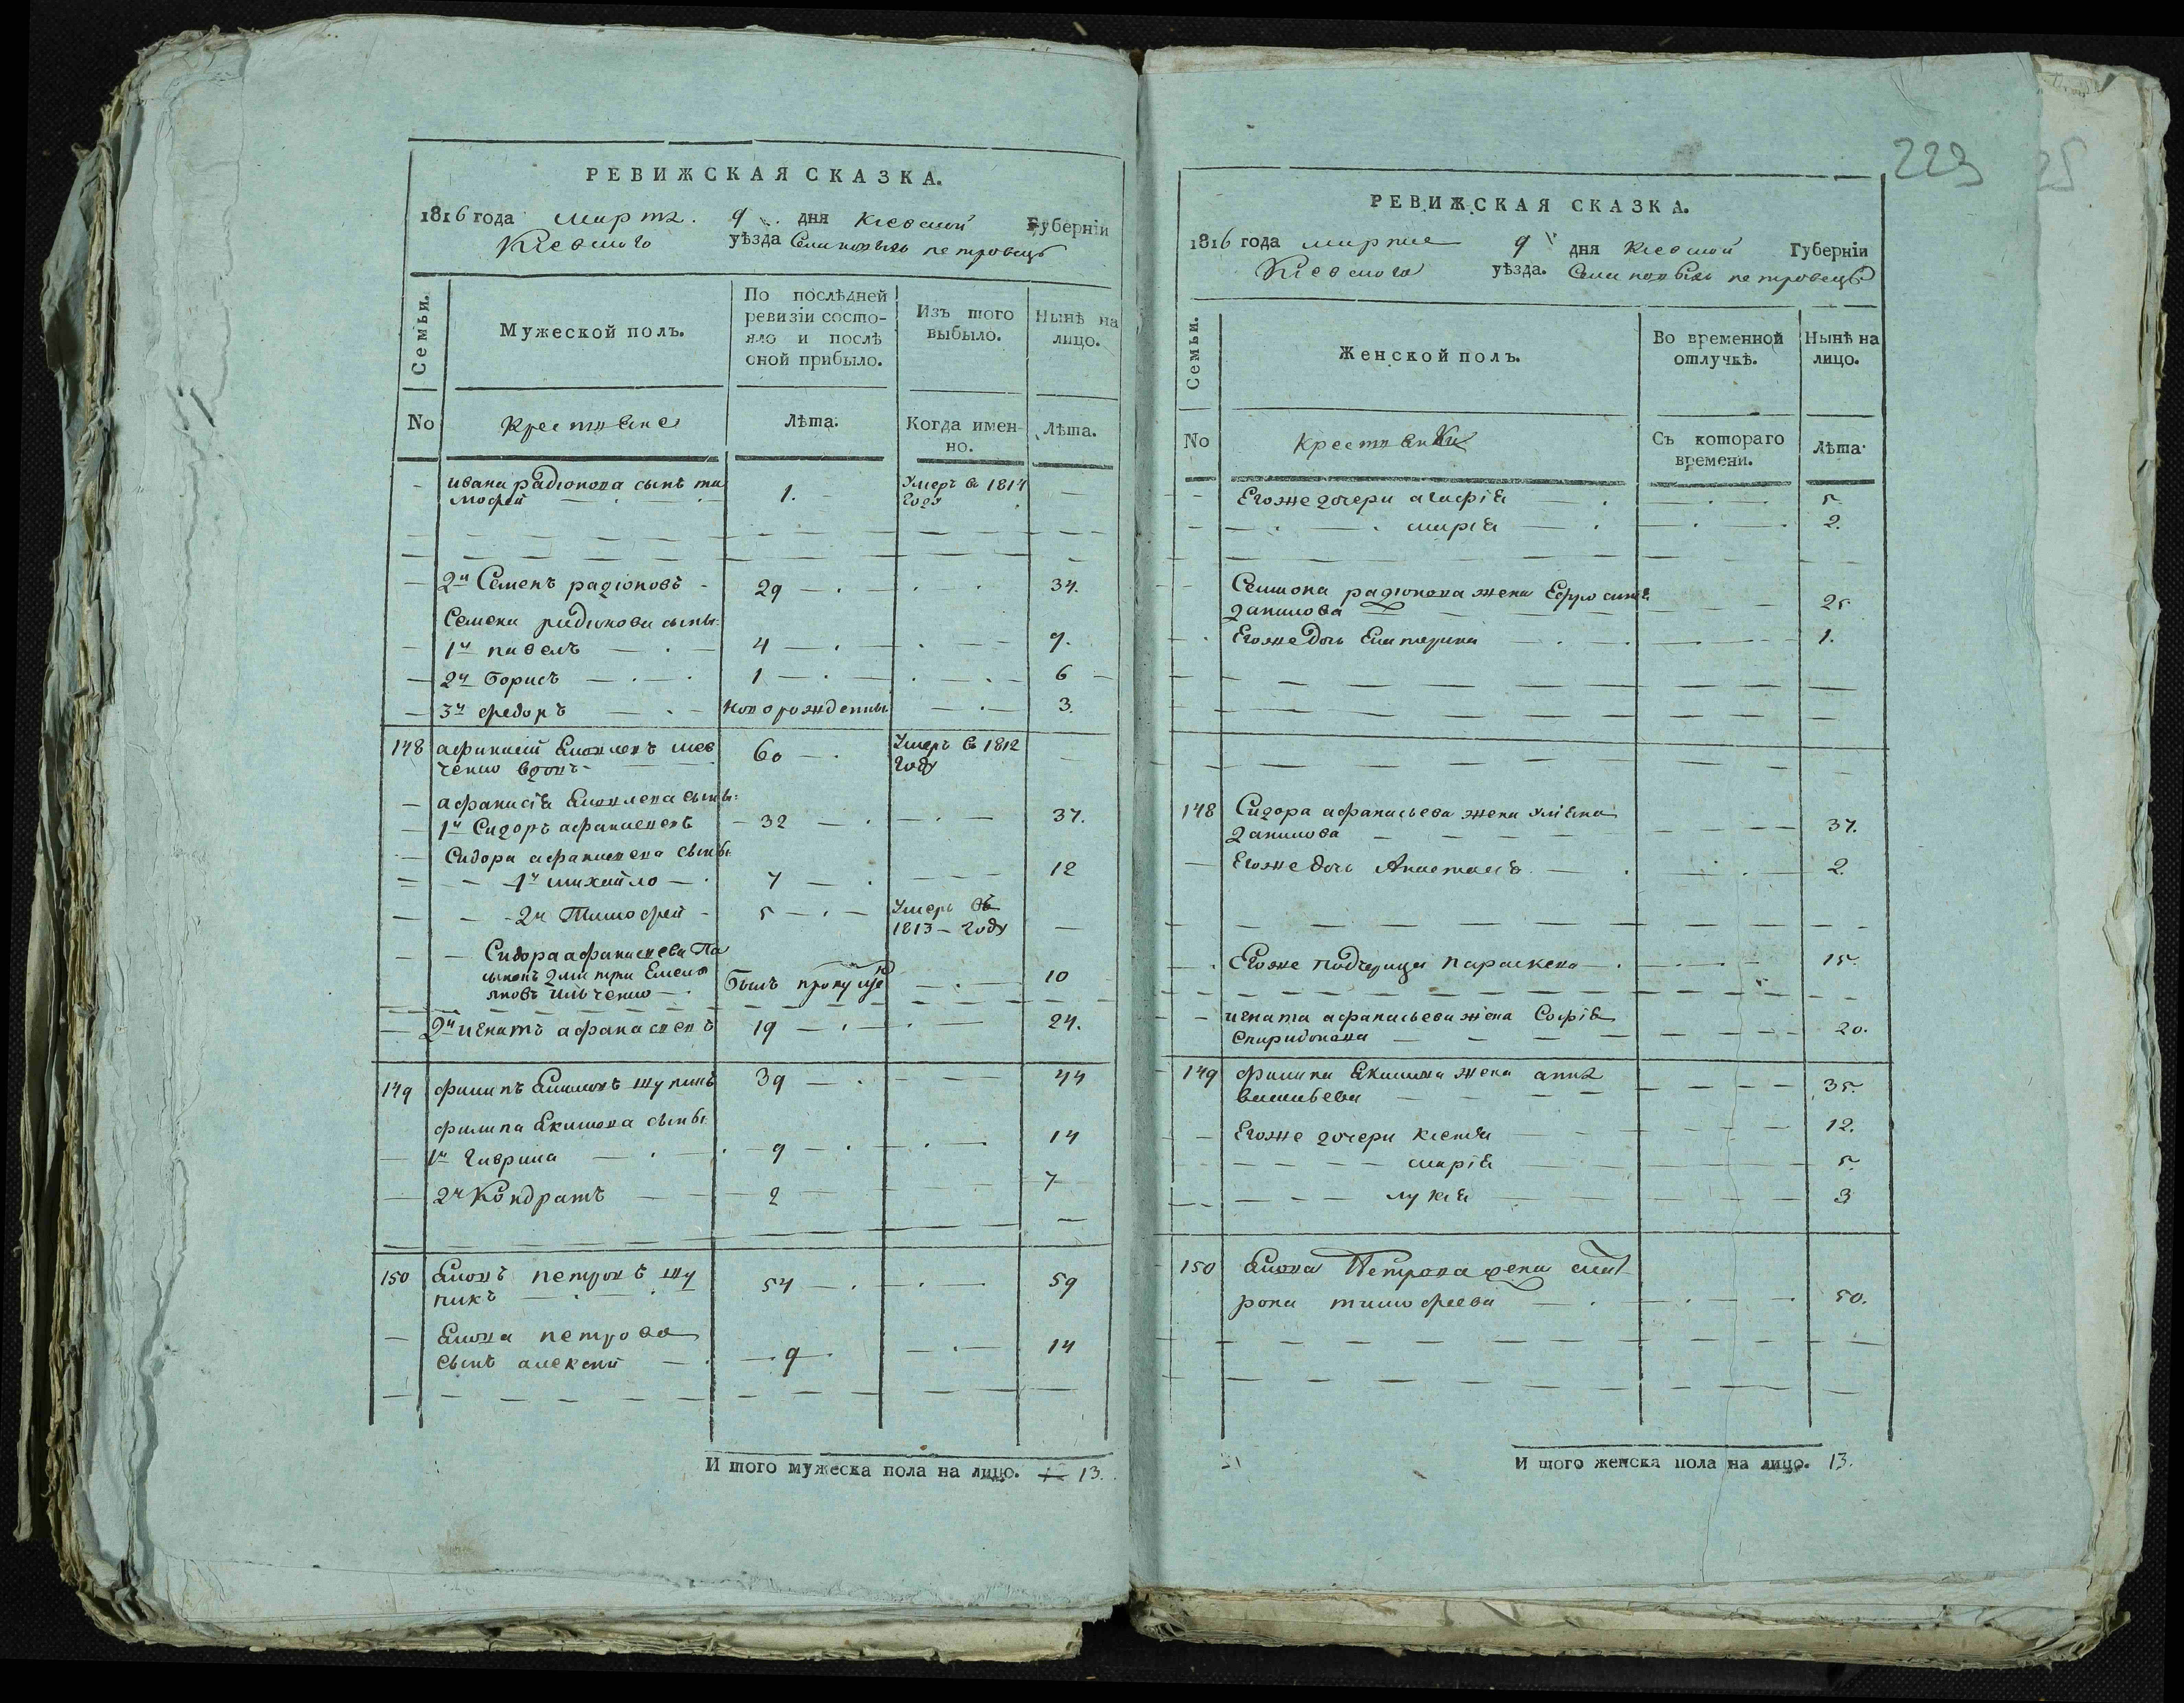 РЕВИЖСКАЯ СКАЗКА.
1816 года марта 9 дня Киевской Губернiи
Киевского уѣзда Села новыхъ петровецъ
Семьи.
Мужеской полъ.
По послѣдней ревизiи состояло и послѣ оной прибыло.
Изъ того выбыло.
Нынѣ на лицо.
No
Крестьяне
Лѣта.
Когда именно.
Лѣта.
ивана радионова сынъ ти
мофей 1. Умеръ в 1814
году
2й Семенъ радионовъ 29 34.
Семена радионова сыны:
1й павелъ 4 9.
2й Борисъ 1 6
3й федоръ новорожденный 3.
148 афанасий Яковлевъ шев
ченко вдовъ 60 Умеръ в 1812
году
афанасiя Яковлева сыны:
1й Сидоръ афанасьевъ 32 37.
Сидора афанасьева сыны
1й михайло 7 12
2й Тимофей 5 Умеръ въ
1813 году
Сидора афанасьева Па
сынокъ Дмитри Емель
яновъ Ильченко Былъ пропущенъ 10
2й игнатъ афанасьевъ 19 24.
149 филипъ Екимовъ шупикъ 39 44
филипа Екимова сыны
1й Гаврила 9 14
2й Кондратъ 2 7
150 Яковъ петровъ шу
пикъ 54 59
Якова петрова
сынъ алексей 9 14
И того мужеска пола на лицо. 13.
223
25
РЕВИЖСКАЯ СКАЗКА.
1816 года марта 9 дня Киевской Губернiи
Киевского уѣзда. Села новыхъ петровецъ
Семьи.
Женской полъ.
Во временной отлучкѣ.
Нынѣ на лицо.
No
Крестьянки
Съ котораго времени.
Лѣта.
Егоже дочери агафiя 5
марiя 2.
Семиона радионова жена Ефросинiя
данилова 25
Егоже дочь Екатерина 1.
148 Сидора афанасьева жена Улiяна
данилова 37.
Егоже дочь Анастасiя 2
Егоже падчерица параскева 15.
игната афанасьева жена Софiя
Спиридонова 20.
149 филипа Екимова жена анна
васильева 35.
Егоже дочери ксенiя 12.
марiя 5.
лукiя 3
150 Якова Петрова жена мат
рона тимофеева 50.
И того женска пола на лицо. 13.